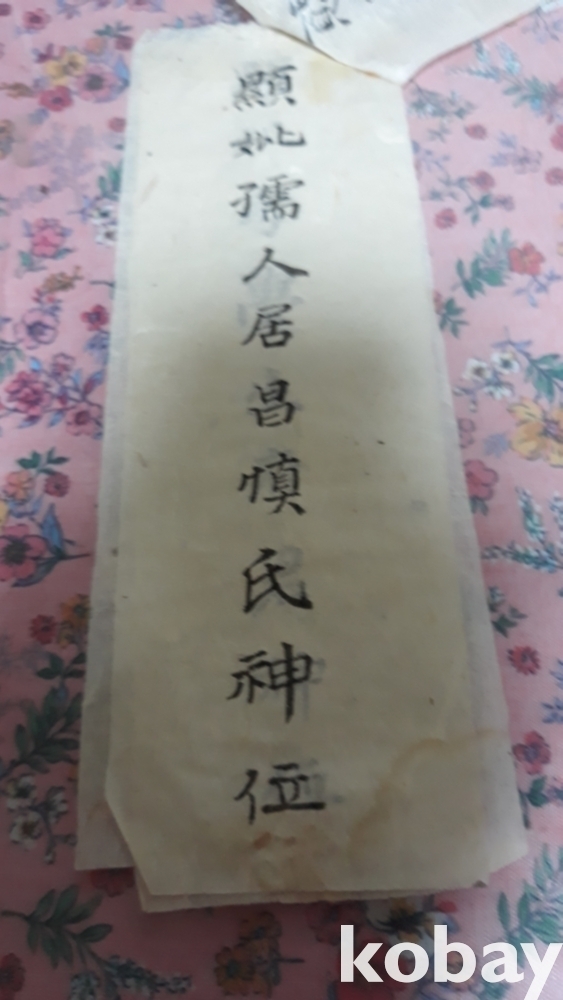 顯妣孺人居昌愼氏神位
kobay